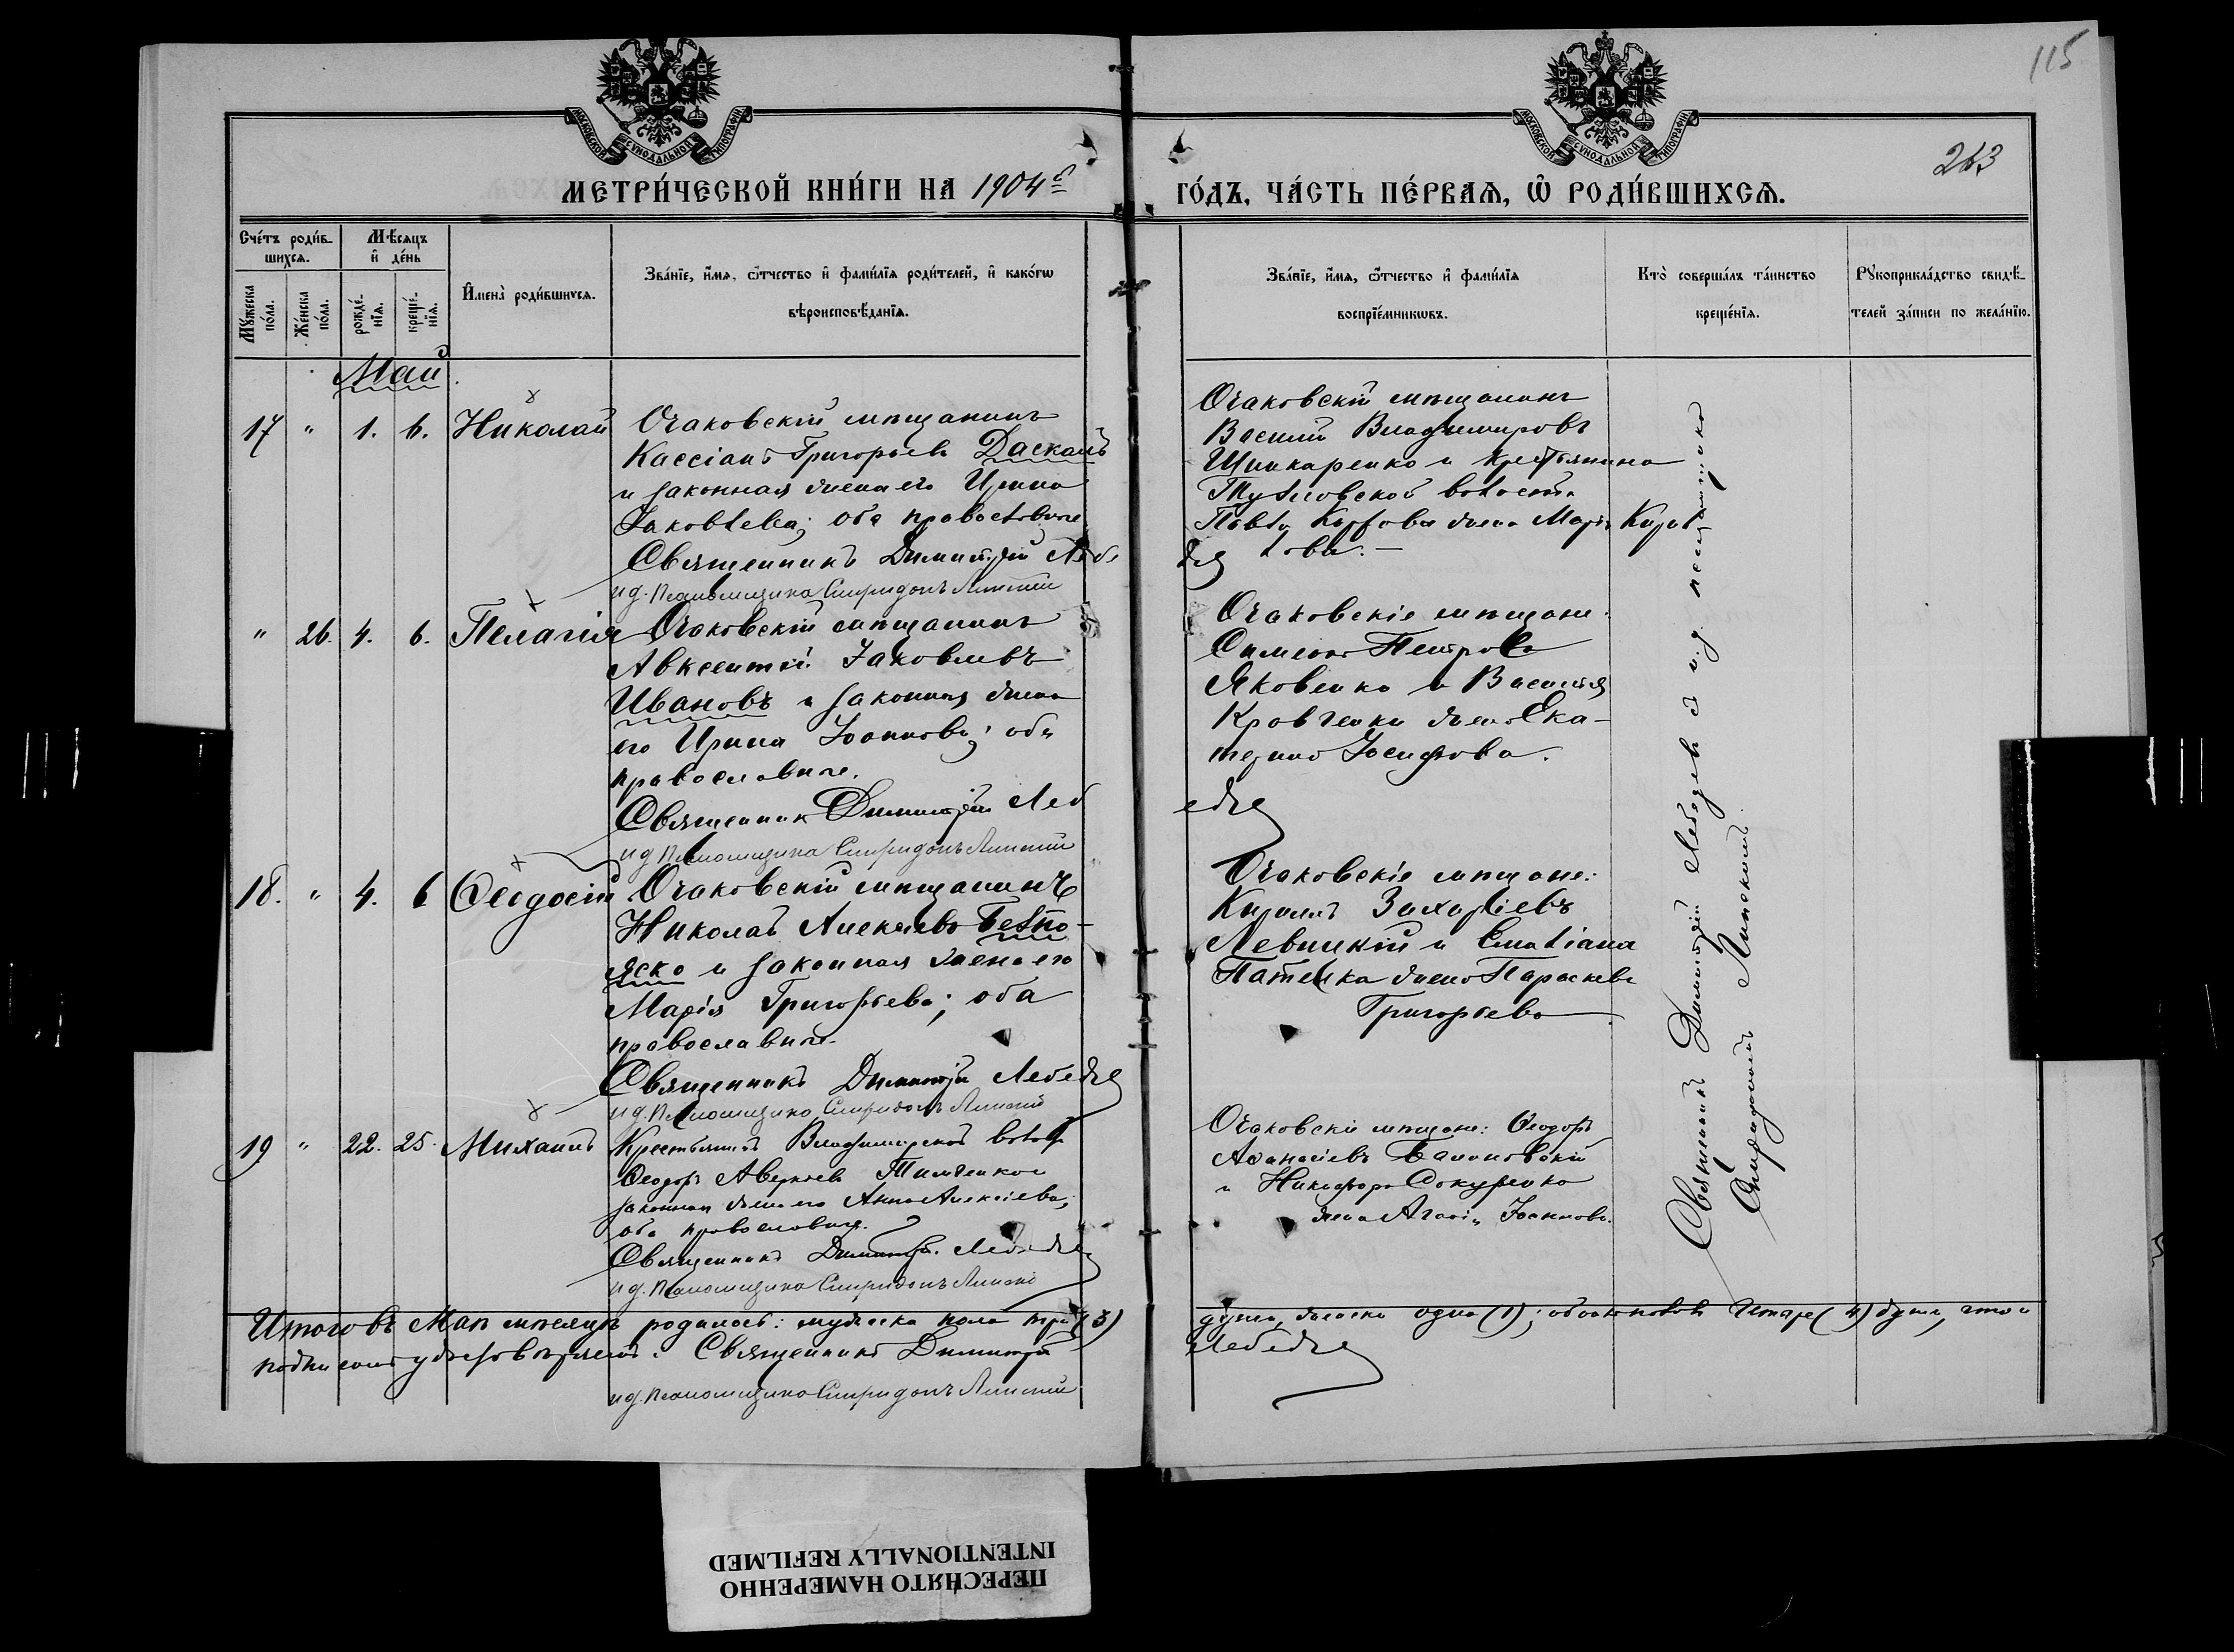 115
263
МОСКОВСКОЙ СѴНОДАЛЬНОЙ ТИПОГРАФІИ
МОСКОВСКОЙ СѴНОДАЛЬНОЙ ТИПОГРАФІИ
МЕТРИ́ЧЕСКОЙ КНИ́ГИ НА 1904й
ГО́ДЪ, ЧА́СТЬ ПЕ́РВАѦ, Ѿ РОДИ́ВШИХСѦ.
Сче́тъ роди́в-
шихсѧ.
Мꙋ́жеска по́ла.
Же́нска по́ла.
Мѣ́сѧцъ
и҆ де́нь
рожде́-
нїѧ.
креще́-
нїѧ.
И҆мена̀ роди́вшихсѧ.
Зва́нїе, и҆́мѧ, ѻ҆́тчество и҆ фами́лїѧ роди́телей, и҆ како́гѡ
вѣроисповѣ́данїѧ.
Зва́нїе, и҆́мѧ, ѻ҆́тчество и҆ фами́лїѧ
воспрїе́мникѡвъ.
Кто̀ соверша́лъ та́инство
креще́нїѧ.
Рꙋкоприкла́дство свидѣ́-
телей за́писи по жела́нїю.
Май
17 " 1. 6. Николай
Очаковскій мѣщанинъ
Кассіанъ Григорьевъ Даскалъ
и законная жена его Ирина
Іаковлева; оба православные
Священникъ Димитрій Лебе
и д. Псаломщика Спиридонъ Липскій
Очаковскій мѣщанинъ
Василій Владимировъ
Шинкаренко и крестьянина
волости
Павла Карлова жена Марія Кирил
лова. –
" 26. 4. 6. Пелагія
Очаковскій мѣщанинъ
Авксентій Іаковлевъ
Ивановъ и законная жена
его Ирина Іоаннова; оба
православные.
Священник Димитрій Леб
и д. Псаломщика Спиридонъ Липскій
Очаковскіе мѣщане:
Симеонъ Петровъ
Яковенко и Василія
Кравченки жена Ека-
терина Іосифова.
едев
18. " 4. 6 Ѳеодосій
Очаковскій мѣщанинъ
Николай Алексѣевъ Безпо-
яско и законная жена его
Марія Григорьева; оба
православные.
Священникъ Димитрій Лебедев
и д. Псаломщика Спиридонъ Липскій
Очаковскіе мѣщане:
Кириллъ Захаріевъ
Левицкій и Емиліана
жена Параскева
Григорьева
19 " 22. 25. Михаилъ
Крестьянинъ Владимірской волос.
Ѳеодоръ Аверкіевъ Тимченко и
законная жена его Анна Алексіева;
оба православные.
Священникъ Димитрій Лебедев
и д. Псаломщика Спиридонъ Липскій
Очаковскіе мѣщане: Ѳеодоръ
Аѳанасіевъ
и Никифора Сокуренко
жена Агаѳія Іоаннова.
Священникъ Димитрій Лебедевъ и и. д. псаломщика
Спиридонъ Липскій.
Итого въ Маѣ мѣсяцѣ родилось: мужеска пола три (3)
души, женска одна (1); обоего пола четыре (4) души, что и
подписомъ удостовѣряемъ. Священникъ Димитрій
Лебедев
и д. Псаломщика Спиридонъ Липскій
ПЕРЕСНЯТО НАМЕРЕННО
INTENTIONALLY REFILMED